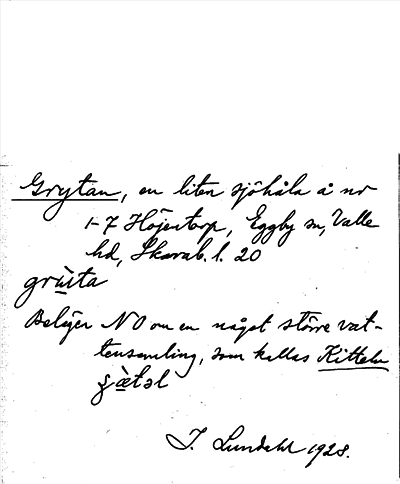 Grytan, en liten sjöhåla å nr
1-7 Höjentorp, Eggby sn, Valle
hd, Skarab. l. 20
grùta
Beläget NO om en något större vat-
tensamling, som kallas Kitteln
J. Lundahl 1928.